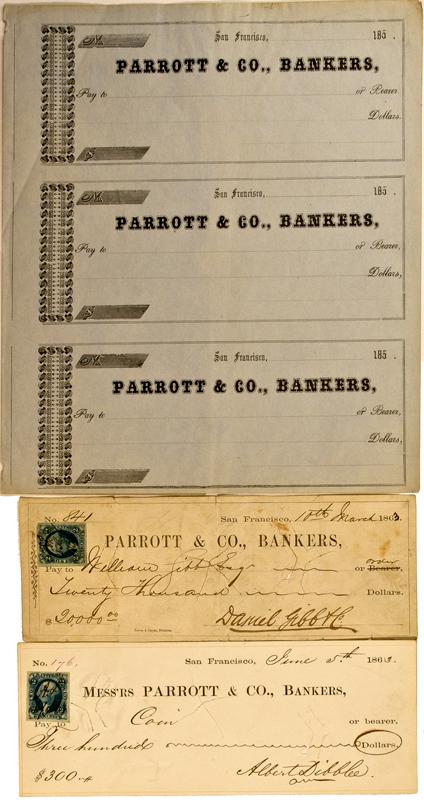 No.
San Francisco, 185 .
PARROTT & CO., BANKERS,
Pay to or Bearer
Dollars.
$
No.
San Francisco, 185 .
PARROTT & CO., BANKERS,
Pay to or Bearer,
Dollars,
$
No.
San Francisco, 185 .
PARROTT & CO., BANKERS,
Pay to or Bearer,
Dollars,
$
No. 841 San Francisco, 10th March 1863.
PARROTT & CO., BANKERS,
order
Pay to William Gibb Esq or Bearer.
Twenty Thousand Dollars.
$ 20,000 00 Daniel Gibb & Co
No. 176. San Francisco, June 5.th 1863.
MESS'RS PARROTT & CO., BANKERS,
Pay to Coin or bearer.
Three hundred Dollars.
$300 Albert Dibblee.